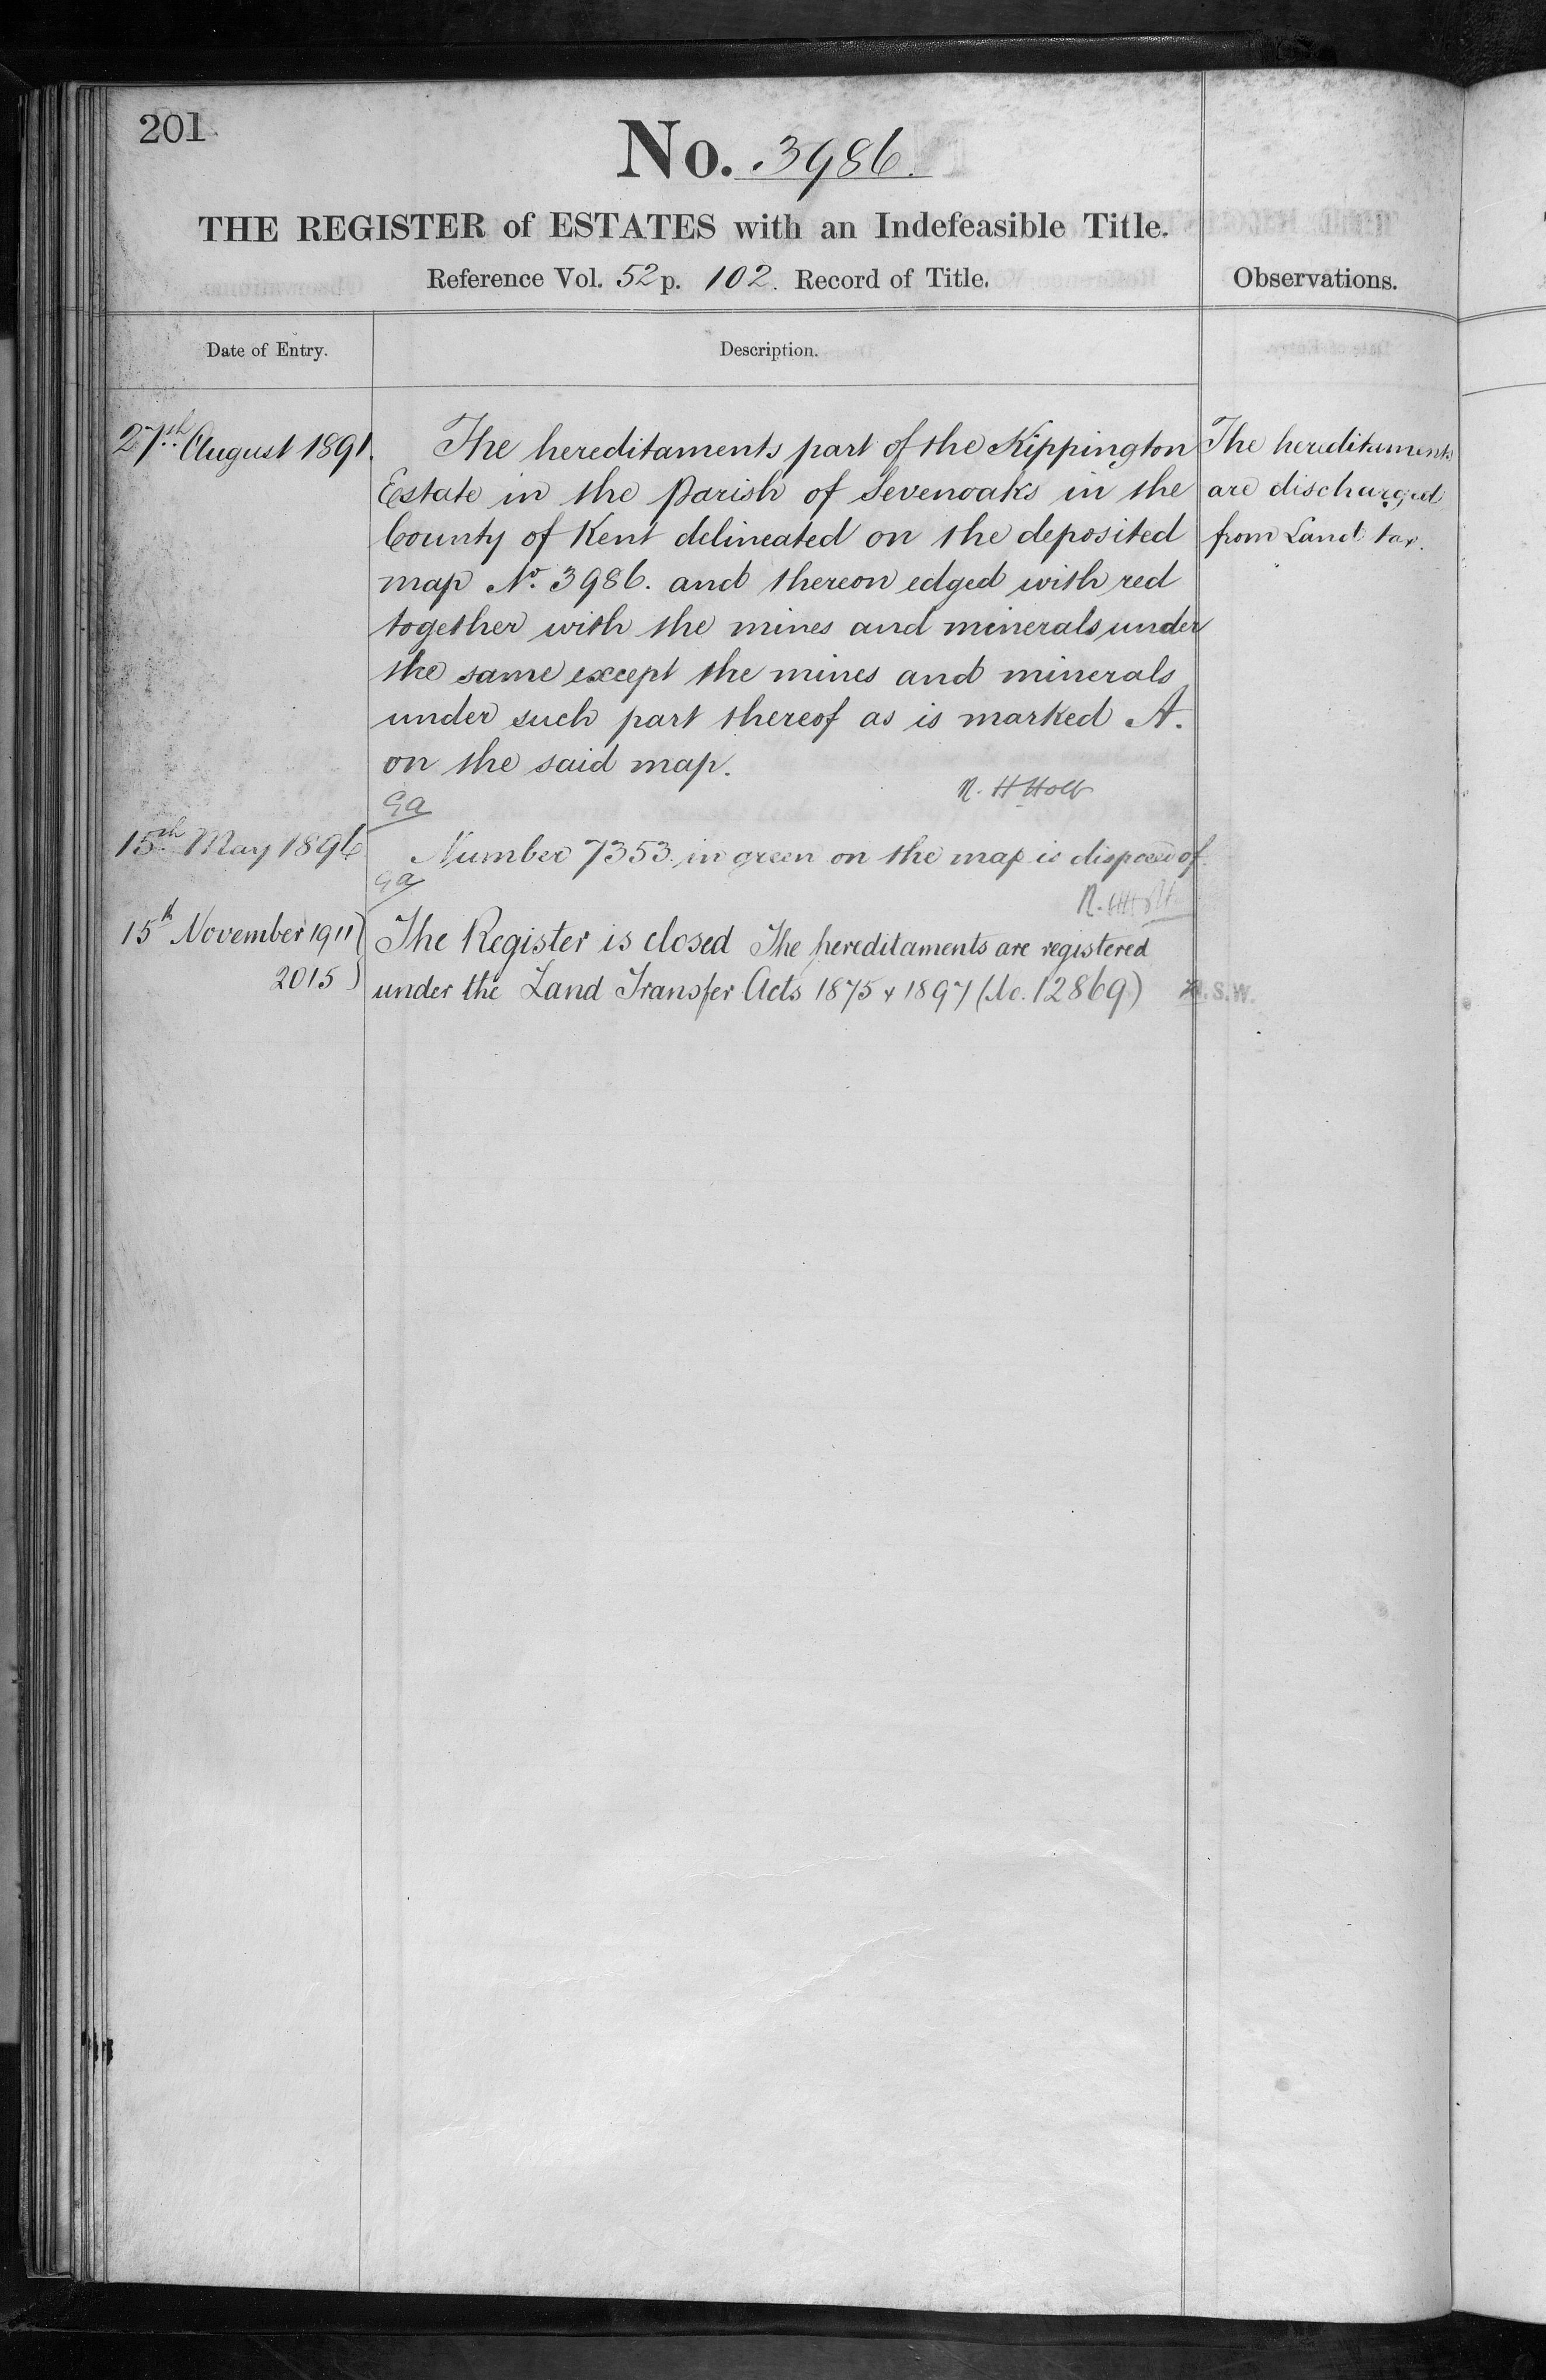 201
No. 3986.
THE REGISTER of ESTATES with an Indefeasible Title.
Reference Vol. 52 p. 102. Record of Title.
Observations.
Date of Entry.
Description.
27th August 1891.
The hereditaments part of the Kippington
Estate in the Parish of Sevenoaks in the
County of Kent delineated on the deposited
map No. 3986. and thereon edged with red
together with the mines and minerals under
the same except the mines and minerals
under such part thereof as is marked A.
on the said map.
R. H Holt
The hereditaments
are discharged
from Land tax.
Ga
15th May 1896
Number 7353 in green on the map is disposed of.
Ga
R. H Holt
15th November 1911
2015
The Register is closed The hereditaments are registered
under the Land Transfer Acts 1875 & 1897 (No. 12869)
.S.W.